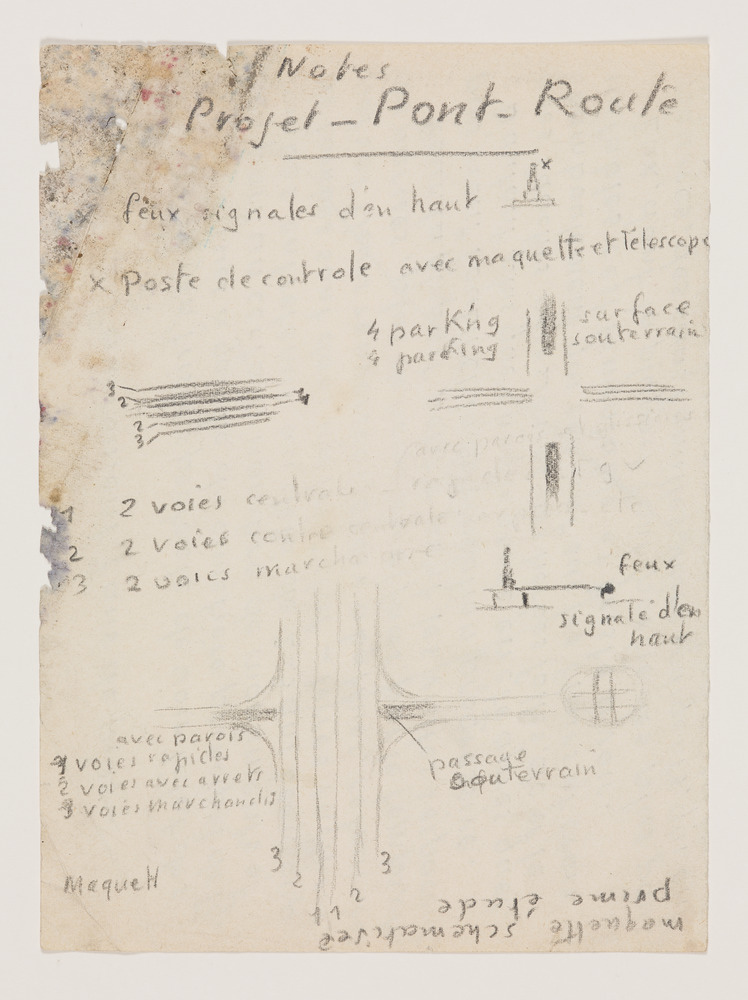 Notes
Projet - Pont - Route
x feux signales d'en haut
x
x Poste de controle avec maquette et Télescope
4 parking surface
4 parking souterrain
3
2
1
2
3
1 2 voies centrale
2 2 voies contre centrale
3 2 voies marcha
feux
signale d'en
haut
avec parois
1 voies rapides
2 voies avec arrets
3 voies marchandis
passage
souterrain
3 2 1 1 2 3
Maquett
maquette schematiseé
prime étude